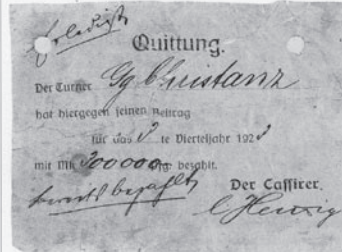 Erledigt
Quittung.
Der Turner Gg Christanz
hat hiergegen seinen Beitrag
für das 3 te Vierteljahr 1923
mit Mk 300000 Pfg. bezahlt.
bereits bezahlt
Der Cassirer.